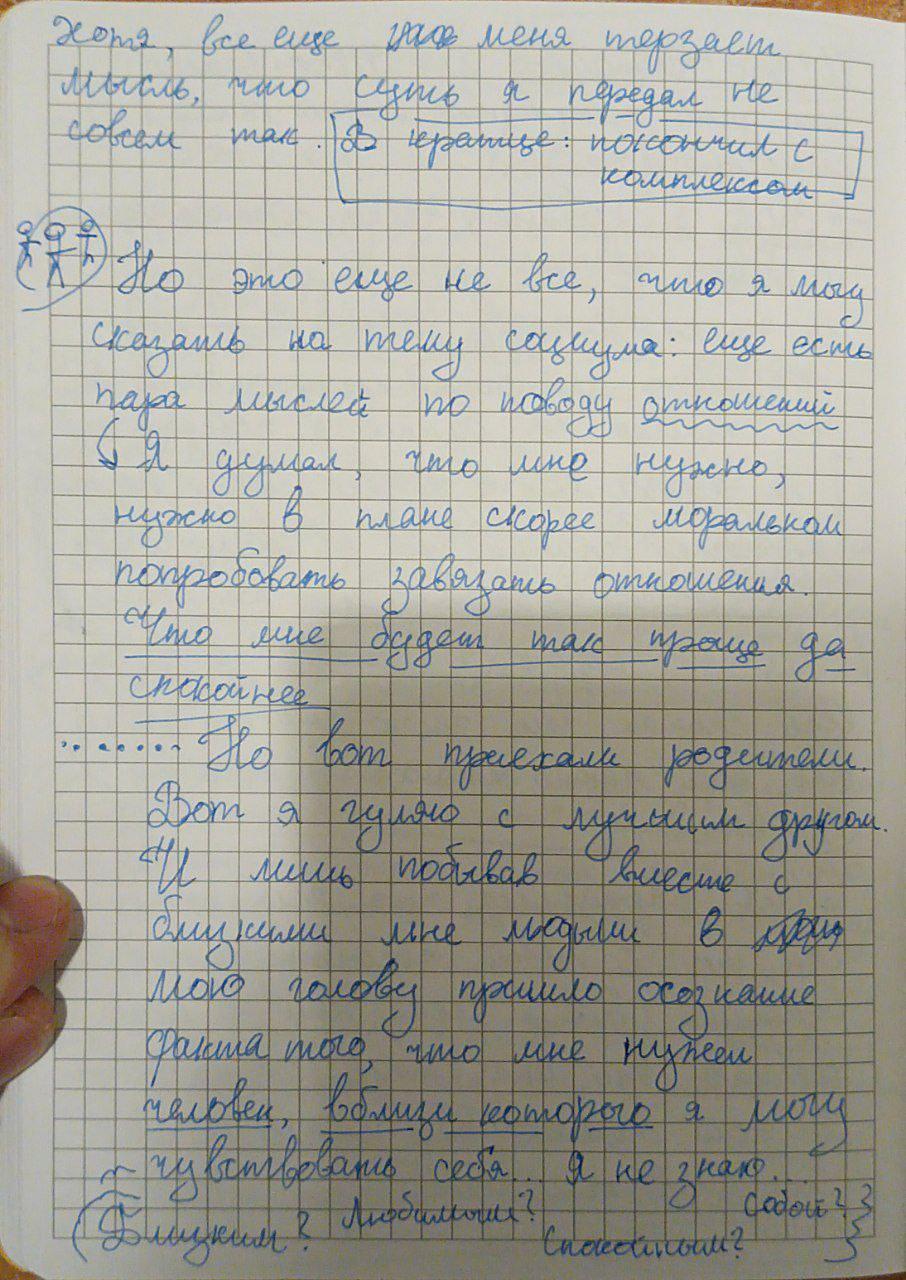 Хотя, все еще меня терзает
мысль, что суть я передал не
совсем так. В кратце: покончил с
комплексом
Но это еще не все, что я могу
сказать на тему социума: еще есть
пара мыслей по поводу отношений
Я думал, что мне нужно,
нужно в плане скорее моральном
попробовать завязать отношения.
Что мне будет так проще да
спокойнее
Но вот приехали родители.
Вот я гуляю с лучшим другом.
И лишь побывав вместе с
близкими мне людьми в
мою голову пришло осознание
факта того, что мне нужен
человек, вблизи которого я могу
чувствовать себя... Я не знаю...
(Близким? Любимым? Собой?
Спокойным?